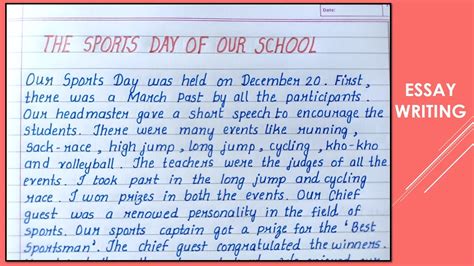 Date:
THE SPORTS DAY OF OUR SCHOOL
Our Sports Day was held on December 20. First,
there was a March Past by all the participants.
Our headmaster gave a short speech to encourage the
students. There were many events like running,
sack-race, high jump, long jump, cycling, kho-kho
and volleyball. The teachers were the judges of all the
events. I took part in the long jump and cycling
race. I won prizes in both the events. Our Chief
guest was a renowed personality in the field of
sports. Our sports captain got a prize for the 'Best
Sportsman'. The chief guest congratulated the winners.
ESSAY
WRITING